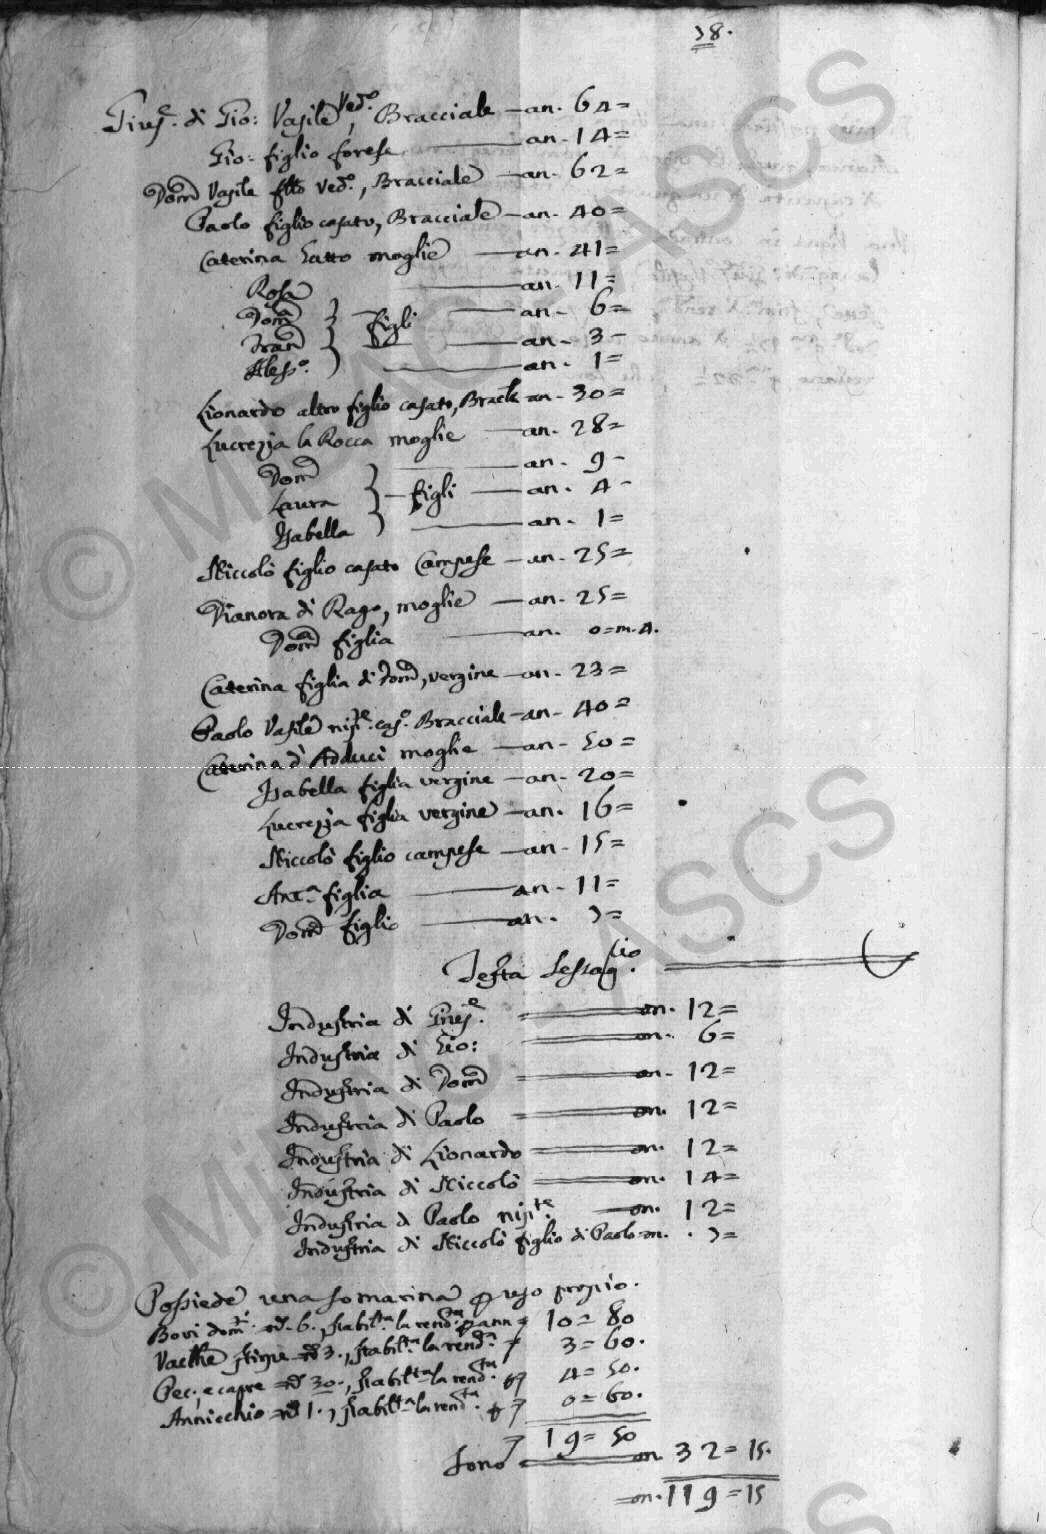 38.
Gius.e di Gio: Vasile Ved.o, Bracciale — an. 64=
Gio: figlio forese — an. 14=
Dom.o Vasile f̃tto Ved.o, Bracciale — an. 62=
Paolo figlio casato, Bracciale — an. 40=
Caterina Gatto moglie — an. 41=
Rosa — an. 11=
Dom.a } figli — an. 6=
Fran.o — an. 3-
Aless.o — an. 1=
Lionardo altro figlio casato, Bracle an. 30=
Lucrezia la Rocca moglie — an. 28=
Dom.o — an. 9-
Laura } figli — an. 4-
Isabella — an. 1=
Niccolò figlio casato Campese — an. 25=
Dianora di Rago, moglie — an. 25=
Dom.a figlia — an. 0=m.4.
Caterina figlia di Dom.o, vergine — an. 23=
Paolo Vasile nip.te cas.o Bracciale — an. 40=
Caterina d'Adduci moglie — an. 50=
Isabella figlia vergine — an. 20=
Lucrezia figlia vergine — an. 16=
Niccolò figlio campese — an. 15=
Ant.a figlia — an. 11=
Dom.o figlio — an. 7=
Testa
Industria di Gius.e on. 12=
Industria di Gio: on. 6=
Industria di Dom.o on. 12=
Industria di Paolo on. 12=
Industria di Lionardo on. 12=
Industria di Niccolò on. 14=
Industria di Paolo nip.te on. 12=
Industria di Niccolò figlio di Paolo on. 7=
Possiede una somarina p uso proprio.
Bovi dom.ti n.o 6., stabil.ta la rend.ta p ann. 10=80
Vacche n.o 3., stabil.ta la rend.ta 3=60.
Pec. e capre n.o 30., stabil.ta la rend.ta 4=50.
Annicchio n.o 1., stabil.ta la rend.ta 0=60.
19=50
Sono on. 32=15.
on. 119=15